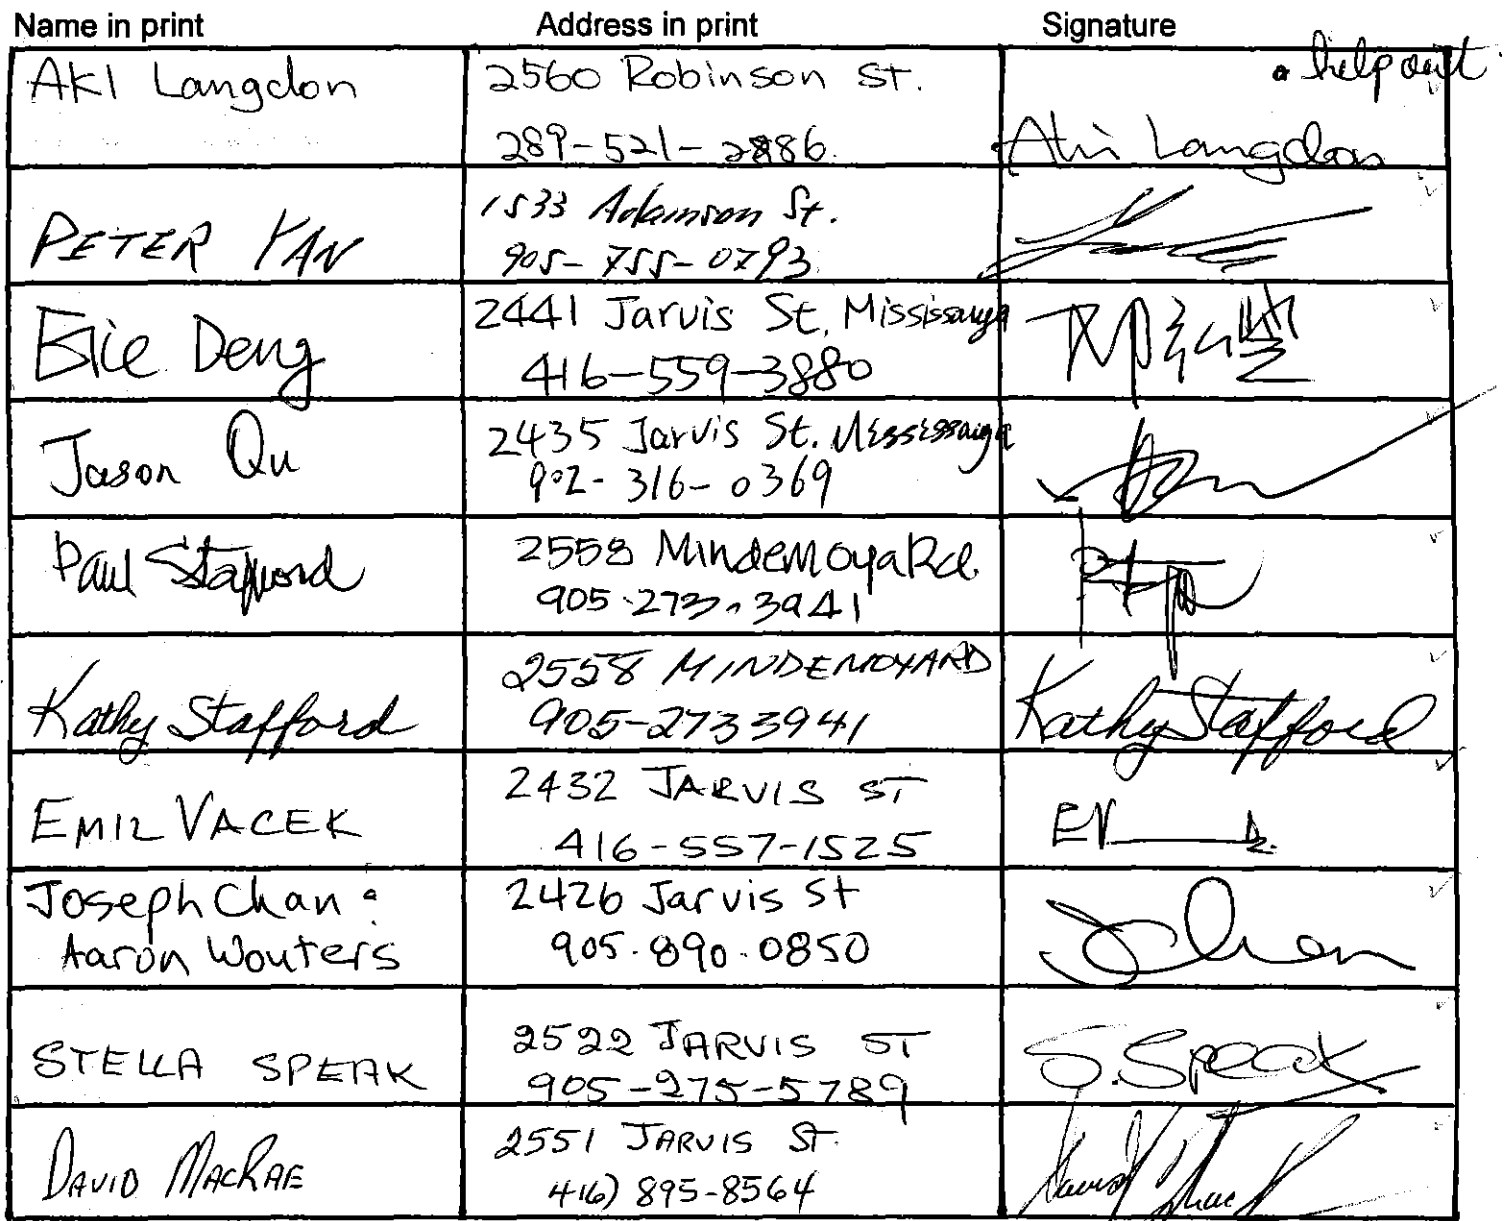 Name in print Address in print Signature
AKI Langdon 2560 Robinson St. • help out
289-521-2886. Aki Langdon
PETER YAN 1533 Adamson St.
905-755-0793
Elie Deng 2441 Jarvis St, Mississauga
416-559-3880
Jason Qu 2435 Jarvis St. Mississauga
902-316-0369
Paul Stafford 2558 Mindemoya Rd.
905-273-3941
Kathy Stafford 2558 MINDEMOYARD Kathy Stafford
905-2733941
EMIL VACEK 2432 JARVIS ST EV
416-557-1525
Joseph Chan: 2426 Jarvis St
Aaron Wouters 905-890-0850
STELLA SPEAK 2522 JARVIS ST S. Speak
905-275-5789
DAVID MACRAE 2551 JARVIS ST.
416) 895-8564